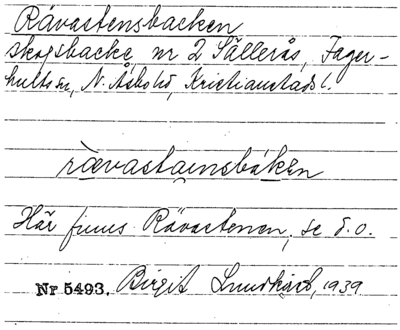 Rävastensbacken
skogsbacke, nr 2 Sällerås, Fager-
hults sn, N. Åsbo hd, Kristianstads l.
rævastainsbakен
Här finns Rävastenen, se d. o.
Nr 5493. Birgit Lundkvist, 1939